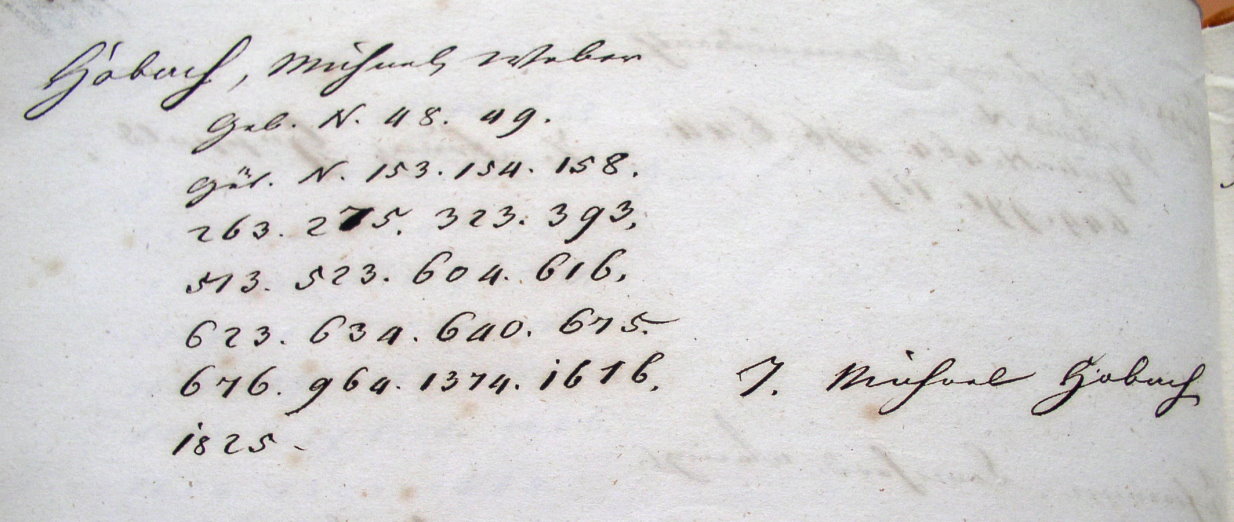 Höbach, Michael, Weber
Geb. N. 48. 49.
Gür. N. 153. 154. 158.
263. 275. 323. 393,
513. 523. 604. 616,
623. 634. 640. 675.
676. 964. 1374. 1616, J. Michael Höbach
1825.